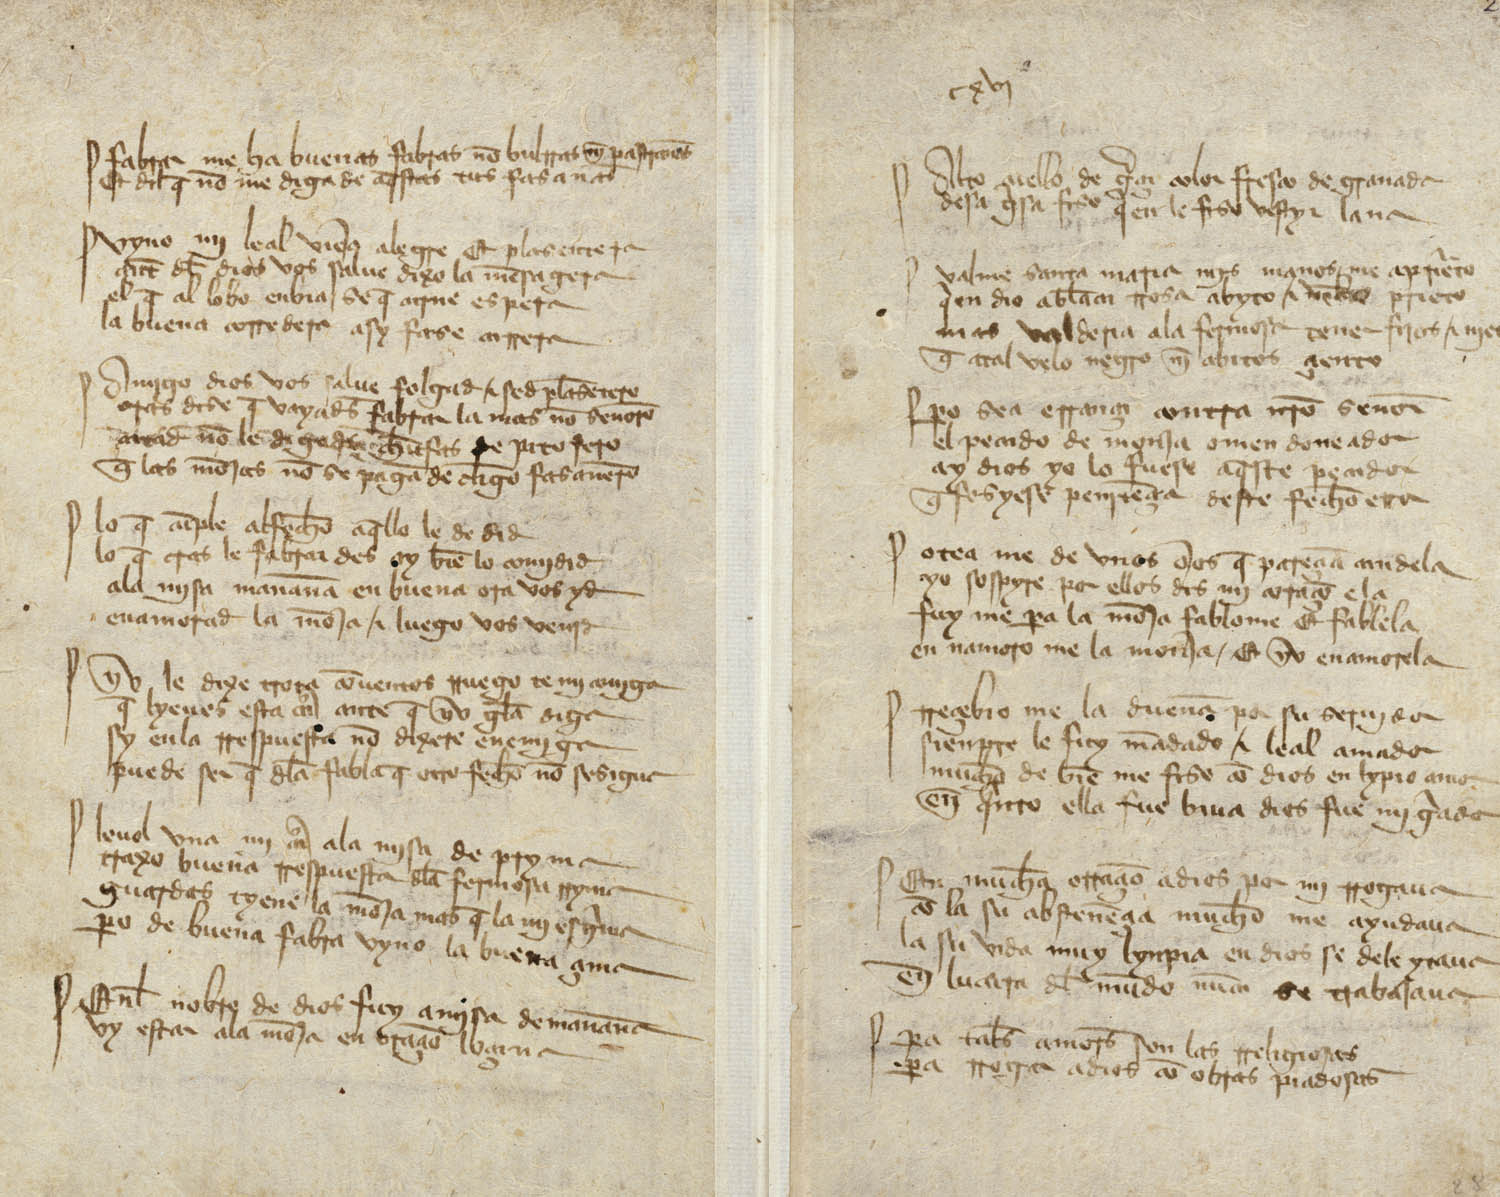 fablar me ha buenas fablas nō bulrras nī pastrañas
Et dil q̄ nō me diga de aq̄stas tus fasañas
vyno mi leal vieja alegre Et plasentera
ante dl̄ dios vos salue dixo la mēsagera
el q̄ al lobo enbia / se q̄ carne espera
la buena corredera asy fase carrera
Amigo dios vos salue folgad / & sed plasētero
cras dise q̄ vayads fablar la mas nō señero
catad nō le digades chufas de pitofero
q̄ las mōjas nō se pagā de cligo fasañero
lo q̄ cūple al fecho aq̄llo le desid
lo q̄ cras le fablardes oy biē lo comedid
ala misa mañana en buena ora vos yd
enamorad la mōja / & luego vos venid
yo le dixe trota cōuentos rruego te mi amiga
q̄ lyeues esta carta ante q̄ yo gela diga
sy enla rrespuesta nō dixere enemiga
puede ser q̄ dla fabla q̄ otro fecho nō se siga
leuol vna mi carta ala misa de pryma
traxo buena rrespuesta dla fermosa rryma
guardas tyene la mōja mas q̄ la mi esgrima
po de buena fabla vyno la buena çima
Enl nonbre de dios fuy a misa de mañana
vy estar ala mōja en oraçō loçana
cxvj
Alto cuello de garça color fresco de granada
desaguisado fiso q̄en le fiso vestyr lana
valme santa maria mjs manos me aprieto
q̄en dio a blāca rrosa abyto / & velo prieto
mas valdria ala fermosa tener fijos / & nietos
q̄ atal velo negro nī abitos çiento
po sea errança contra nrō señor
el pecado de mōja omen doñeador
ay dios yo lo fuese aq̄ste pecador
q̄ fesyese penitēçia deste fecho error
otea me de vnos ojos q̄ pareçiā candela
yo sospyre por ellos dis mi coraçō e la
fuy me pa la mōja fablome Et fablela
en namoro me la mōja / Et yo enamorela
rreçebio me la dueña por su seruidor
sienpre le fuy mādado / & leal amador
mucho de biē me fiso cō dios en lynpio amor
En quāto ella fue biua dios fue mi guiador
Cō mucha oraçō a dios por mi rrogaua
cō la su abstenēçia mucho me ayudaua
la su vida muy lynpia en dios se deleytaua
En locura dl mūdo nūca se trabajaua
pa tales amores son las rreligiosas
pa rrogar a dios cō obras piadosas